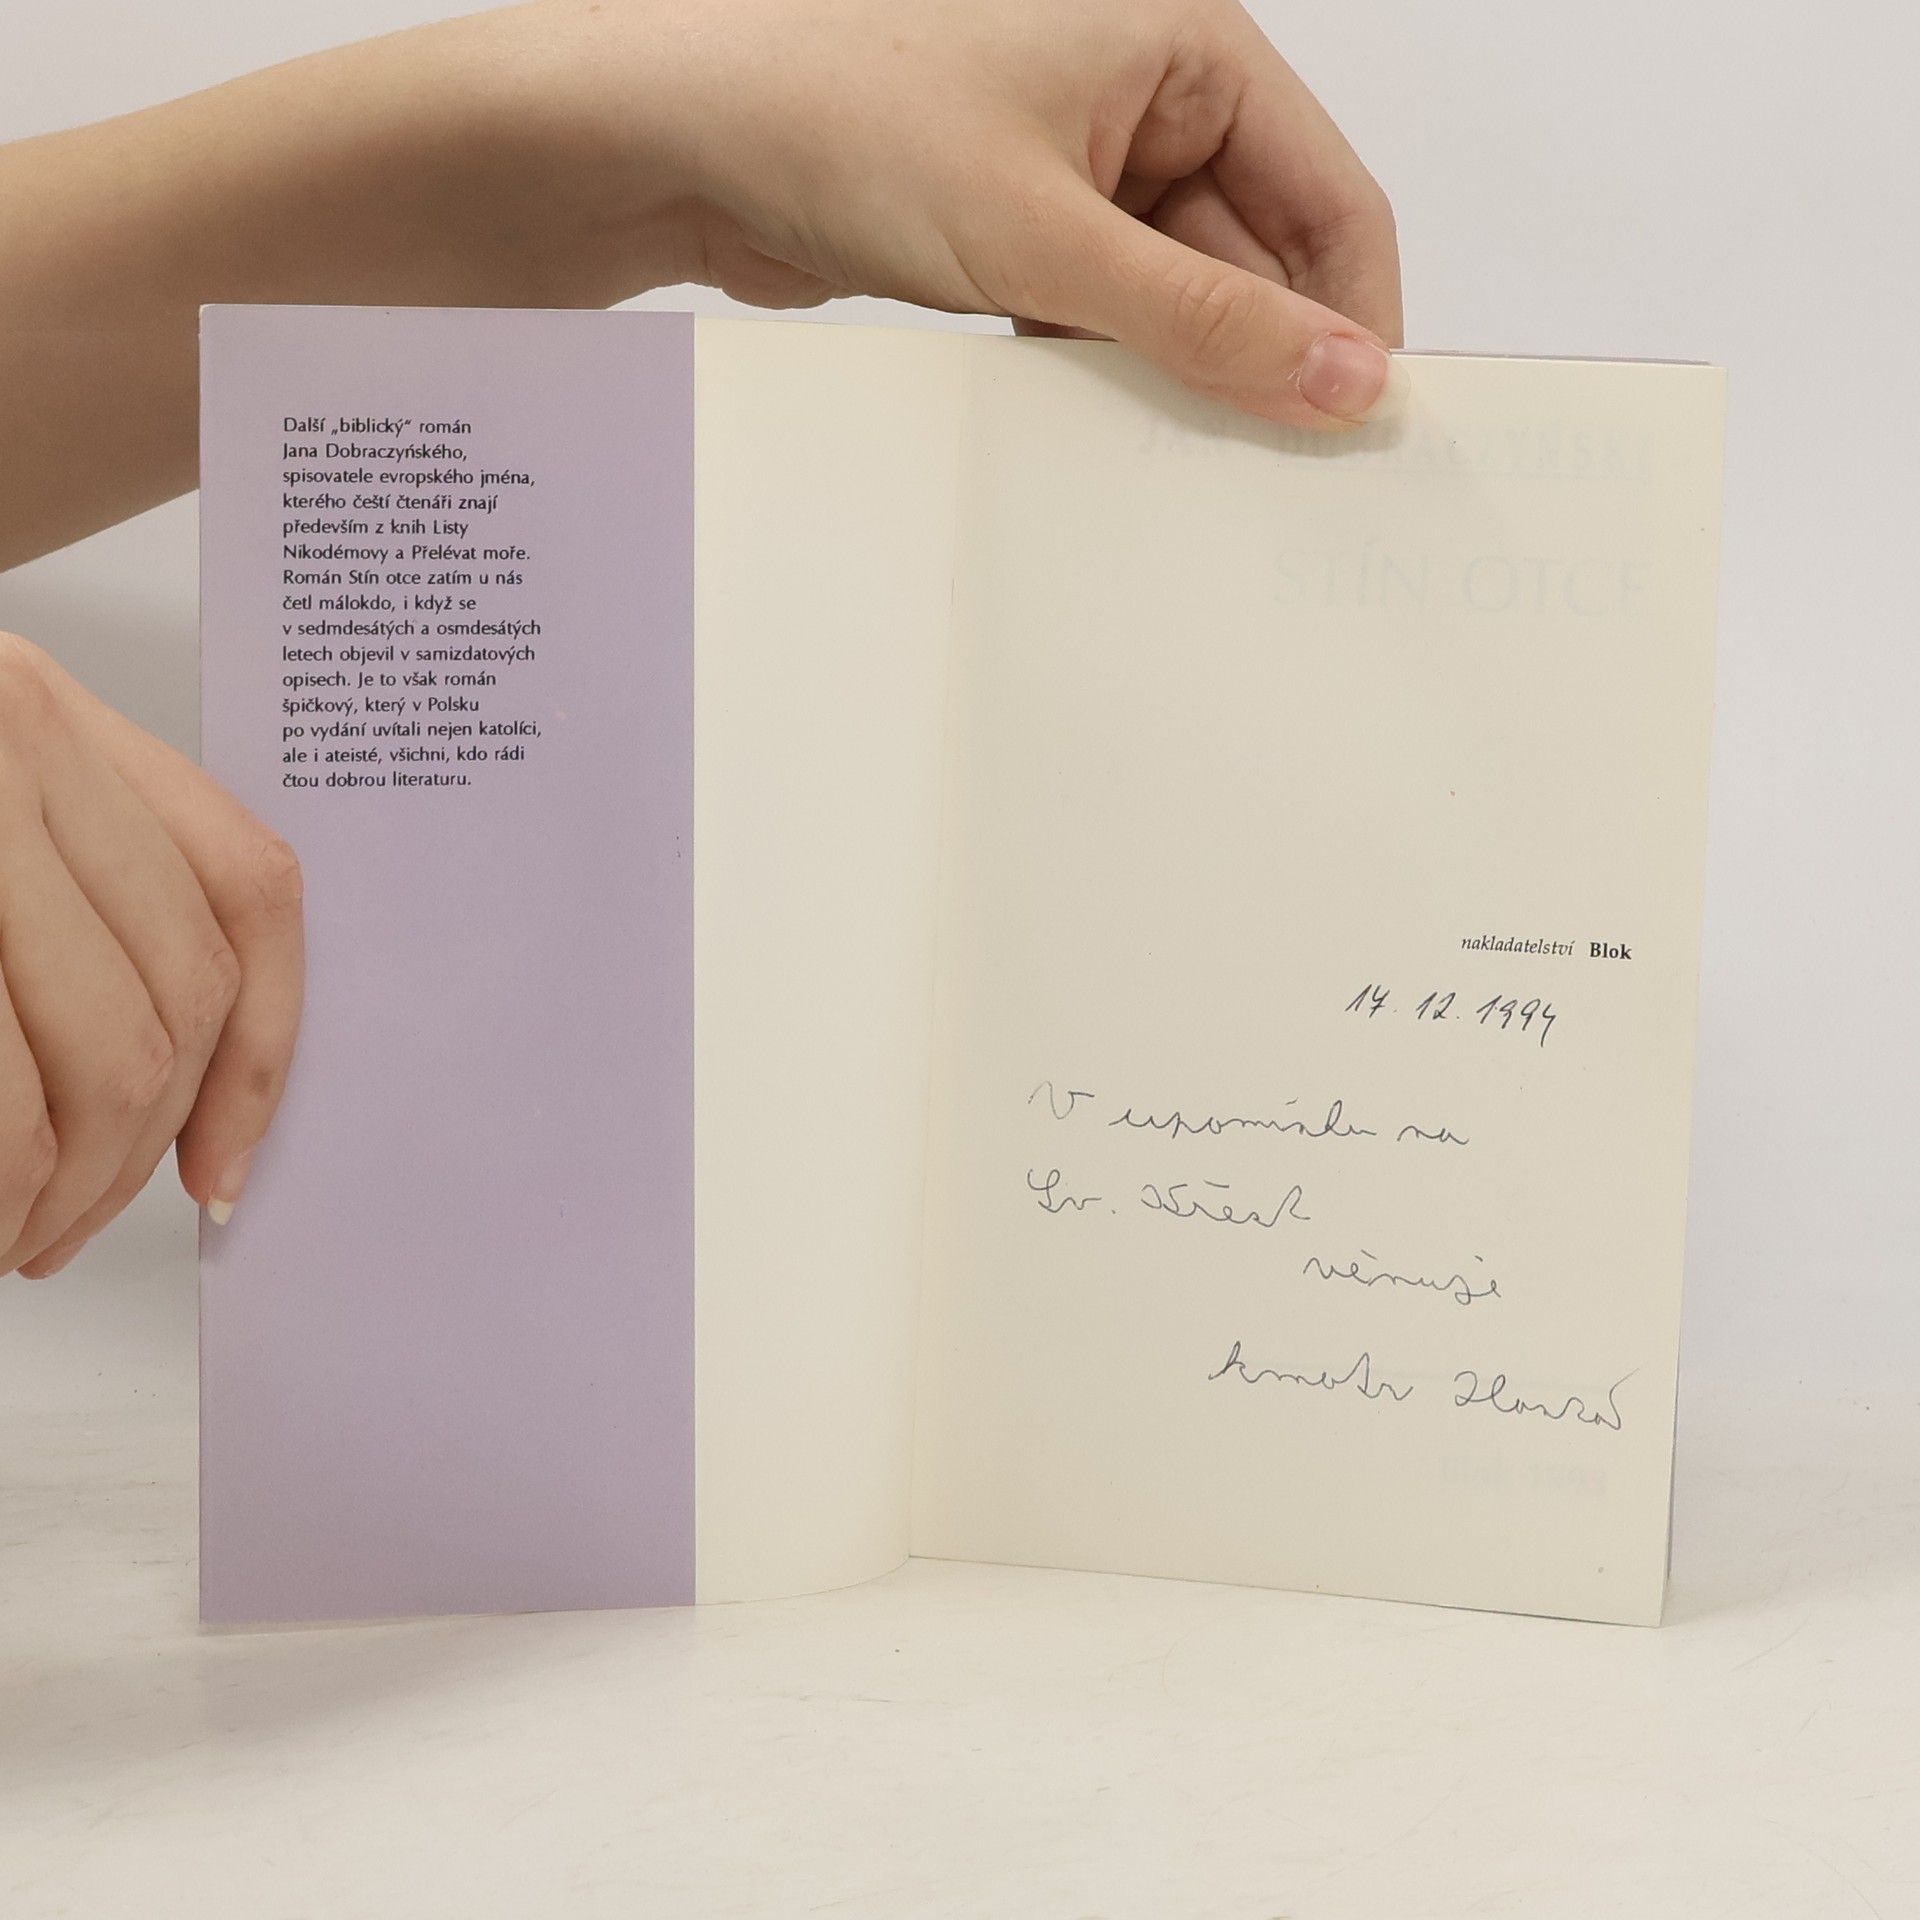 Další „biblický“ román
Jana Dobraczyńského,
spisovatele evropského jména,
kterého čeští čtenáři znají
především z knih Listy
Nikodémovy a Přelévat moře.
Román Stín otce zatím u nás
četl málokdo, i když se
v sedmdesátých a osmdesátých
letech objevil v samizdatových
opisech. Je to však román
špičkový, který v Polsku
po vydání uvítali nejen katolíci,
ale i ateisté, všichni, kdo rádi
čtou dobrou literaturu.
STÍN OTCE
nakladatelství Blok
17. 12. 1994
V upomínku na
Sv. Křest
věnuje
kmotr